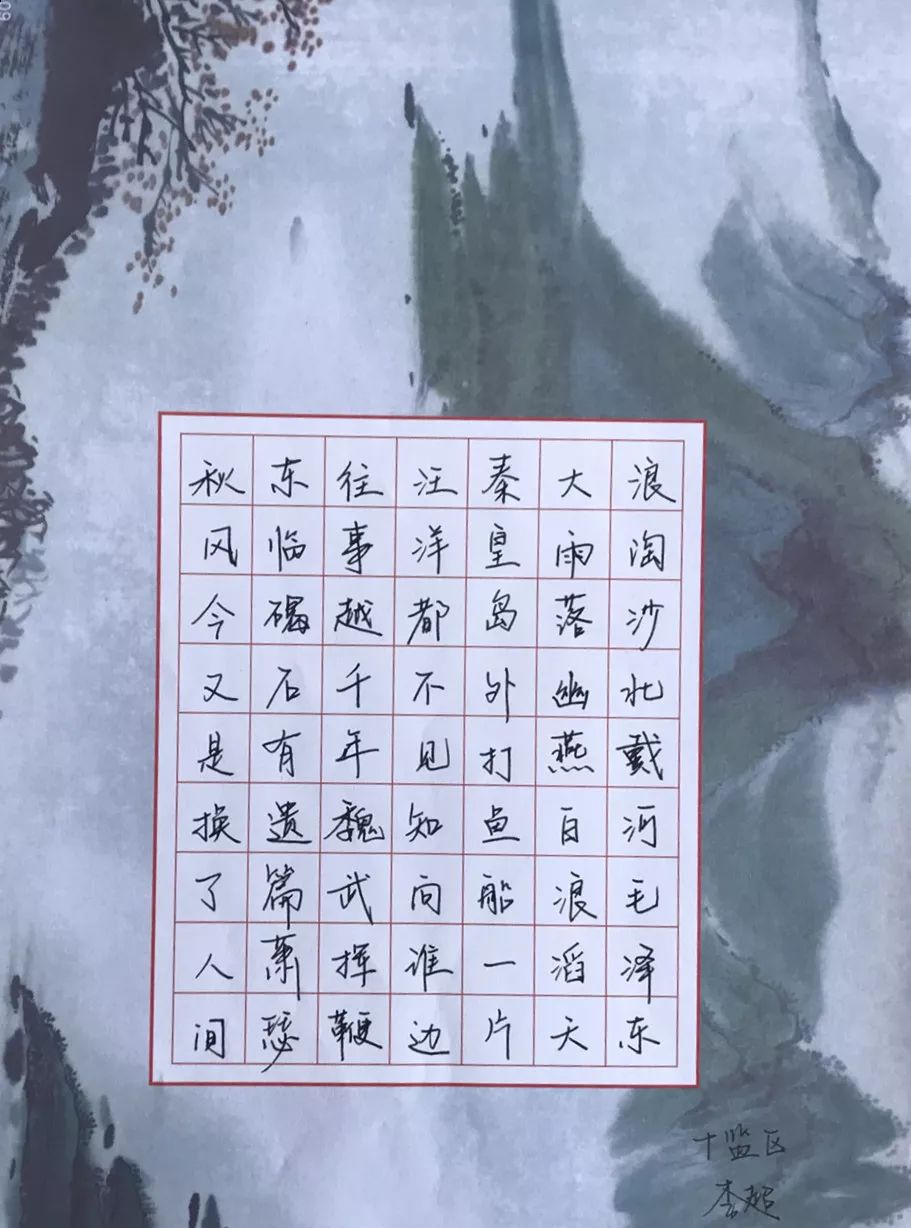 浪淘沙北戴河毛泽东
大雨落幽燕白浪滔天
秦皇岛外打鱼船一片
汪洋都不见知向谁边
往事越千年魏武挥鞭
东临碣石有遗篇萧瑟
秋风今又是换了人间
十监区
李超